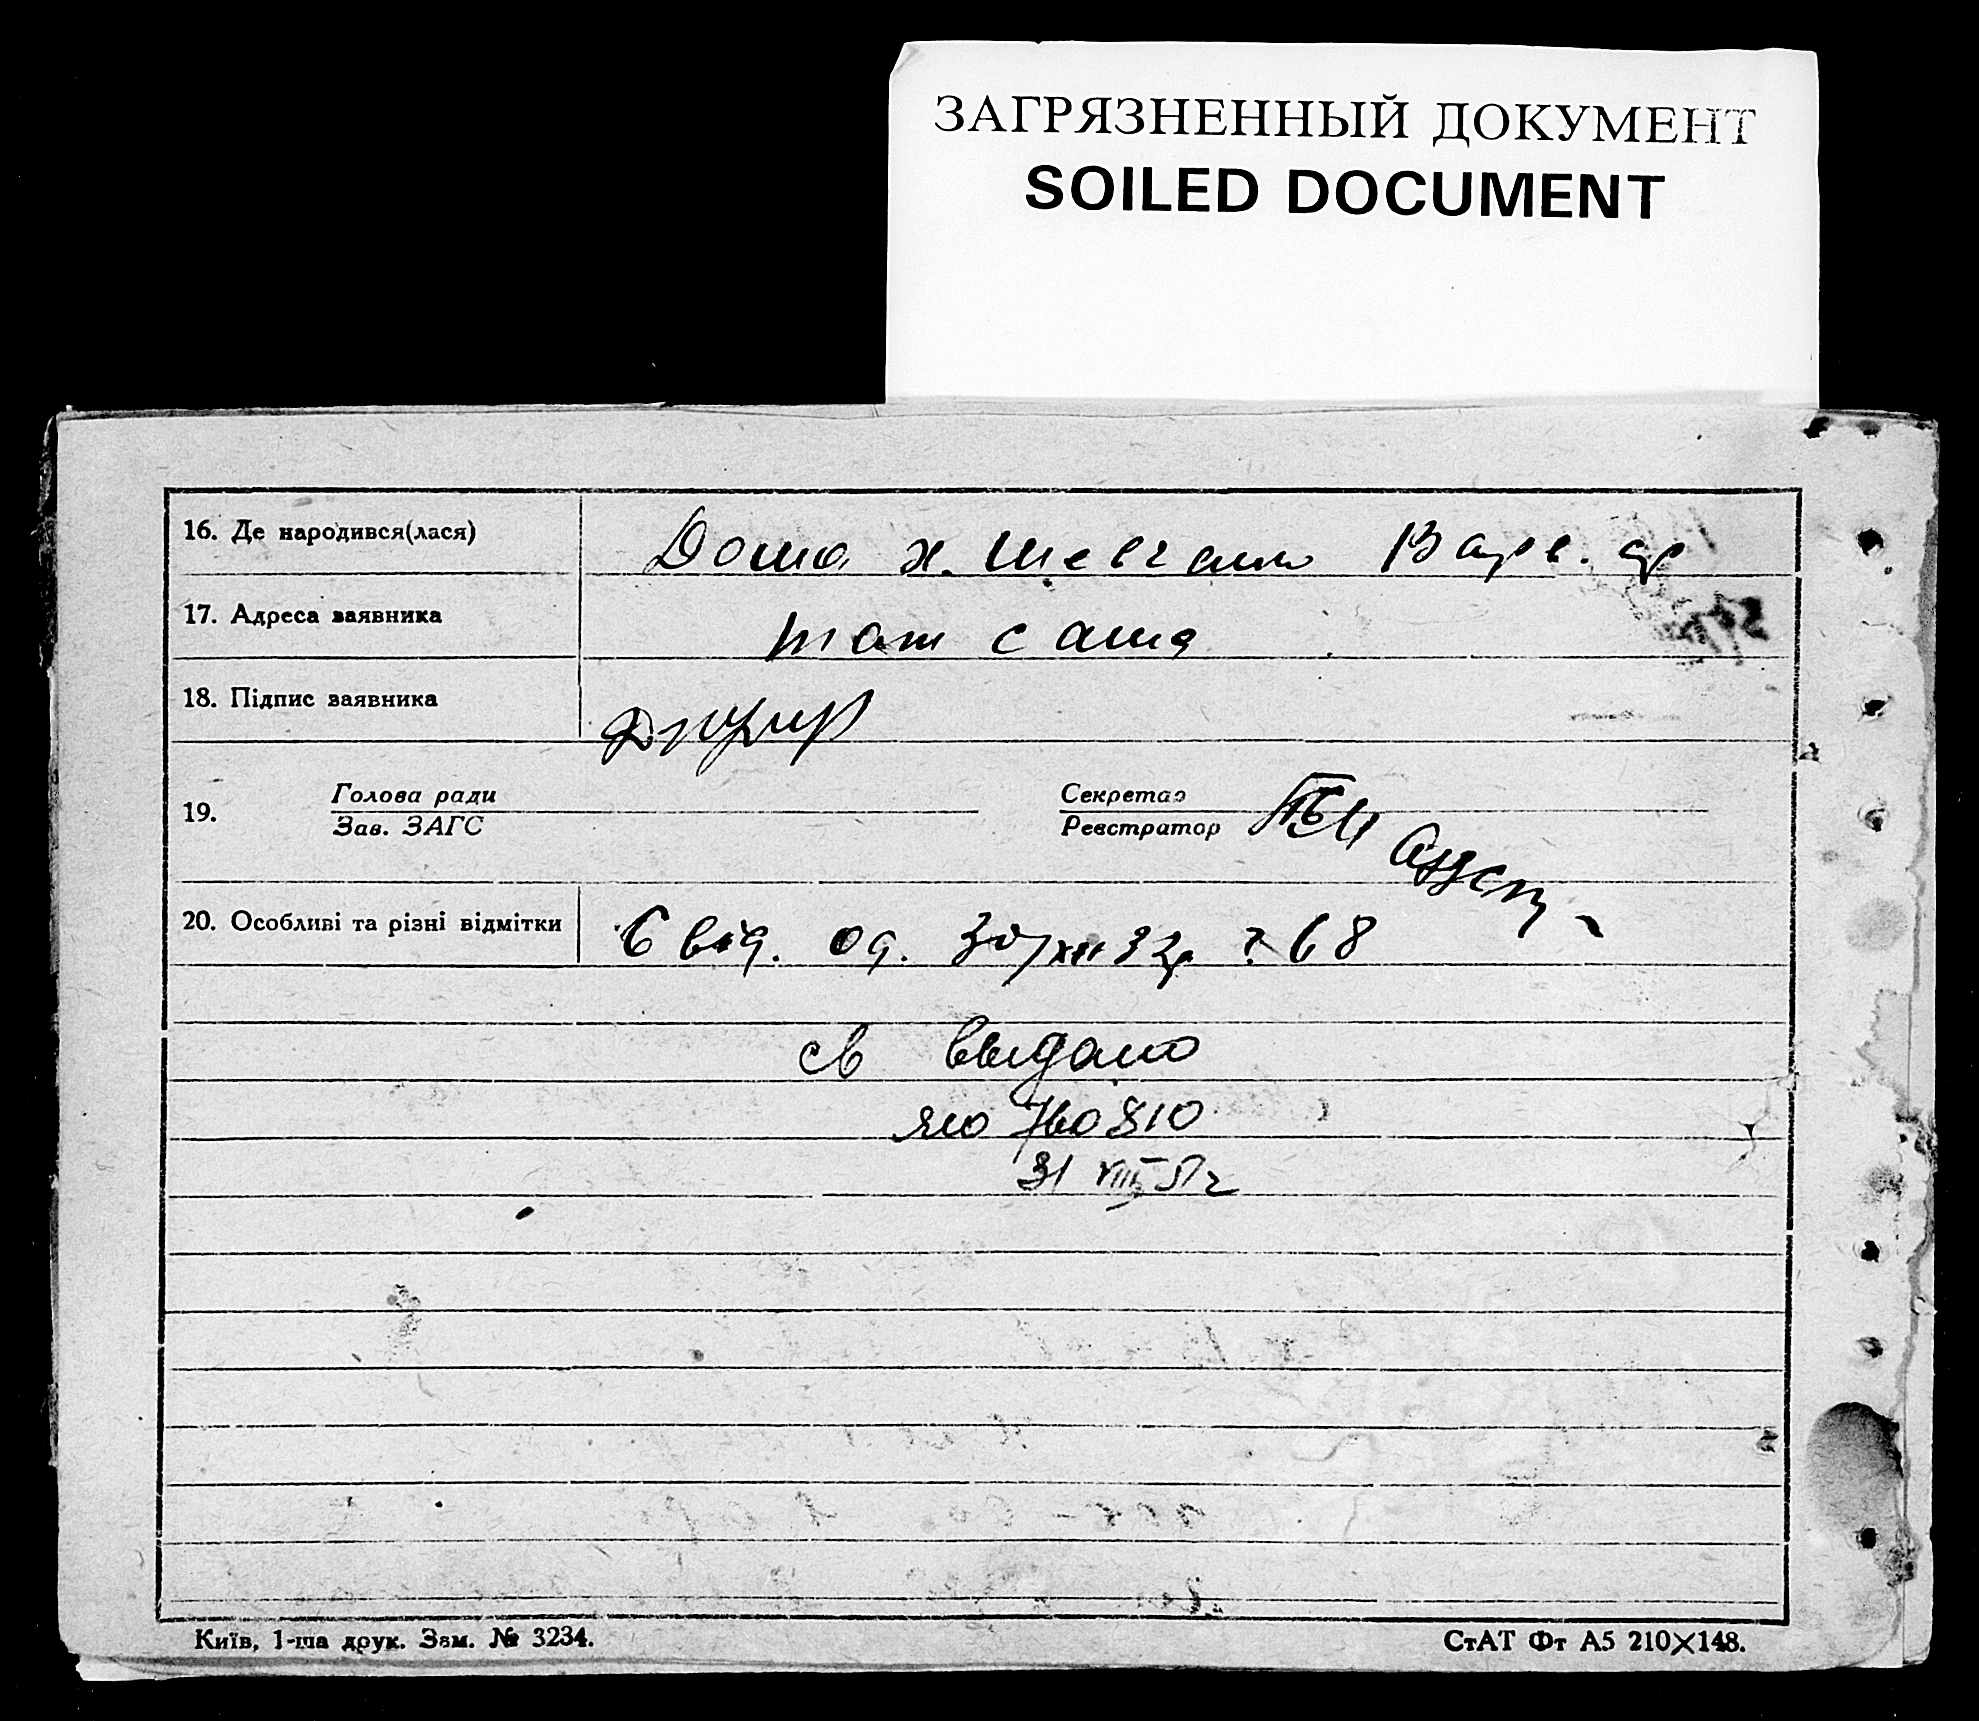 ЗАГРЯЗНЕННЫЙ ДОКУМЕНТ
SOILED DOCUMENT
16. Де народився(лася) Дома х. Шевченко Варв. р
17. Адреса заявника там сама
18. Підпис заявника
19. Голова ради Секретар
Зав. ЗАГС Реєстратор
20. Особливі та різні відмітки Свід. од. 30/XII 32р 68
св выдано
ЯЮ 760810
31 VIII 51г
Київ, 1-ша друк. Зам. № 3234. СтАТ Фт А5 210×148.